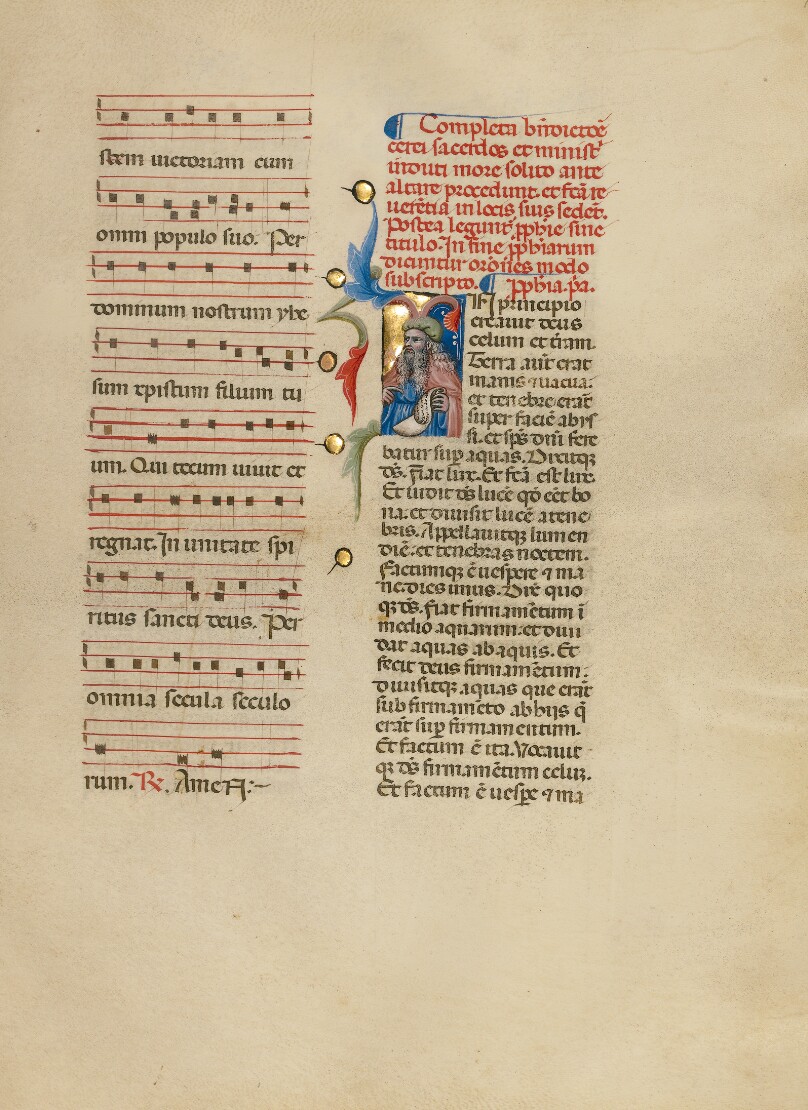 stem uictoriam cum
omni populo suo. Per
dominum nostrum yhe
sum xpistum filium tu
um. Qui tecum uiuit et
regnat. In unitate spi
ritus sancti deus. Per
omnia secula seculo
rum. R. Amen:~
Completa bñdictõe
cerei sacerdos et minist'
induti more solito ante
altare procedunt. et fc̃a re
uerẽtia in locis suis sedẽt.
Postea legunt' ꝓphie sine
titulo. In fine ꝓphiarum
dicuntur orõnes modo
subscripto. ꝓphia. pͣa.
IN principio
creauit deus
celum et tr̃am.
Terra aut̃ erat
inanis ⁊ uacua:
et tenebre erãt
super faciẽ abys
si. et sp̃s dñi fere
batur suꝑ aquas. Dixitqꝫ
d̃s. Fiat lux. Et fc̃a est lux.
Et uidit d̃s lucẽ qõ eẽt bo
na. et diuisit lucẽ a tene
bris. Appellauitqꝫ lumen
diẽ. et tenebras noctem.
Factumqꝫ ẽ uespere ⁊ ma
ne. dies unus. Dix̃ quo
qꝫ d̃s. fiat firmamẽtum ĩ
medio aquarum. et diui
dat aquas ab aquis. Et
fecit deus firmamẽtum:
diuisitqꝫ aquas que erãt
sub firmamẽto ab hijs q̃
erãt suꝑ firmamentum.
Et factum ẽ ita. Vocauit
qꝫ d̃s firmamẽtum celuꝫ.
Et factum ẽ uesꝑe ⁊ ma